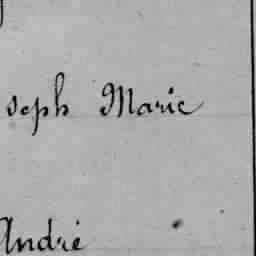 seph Marie
André